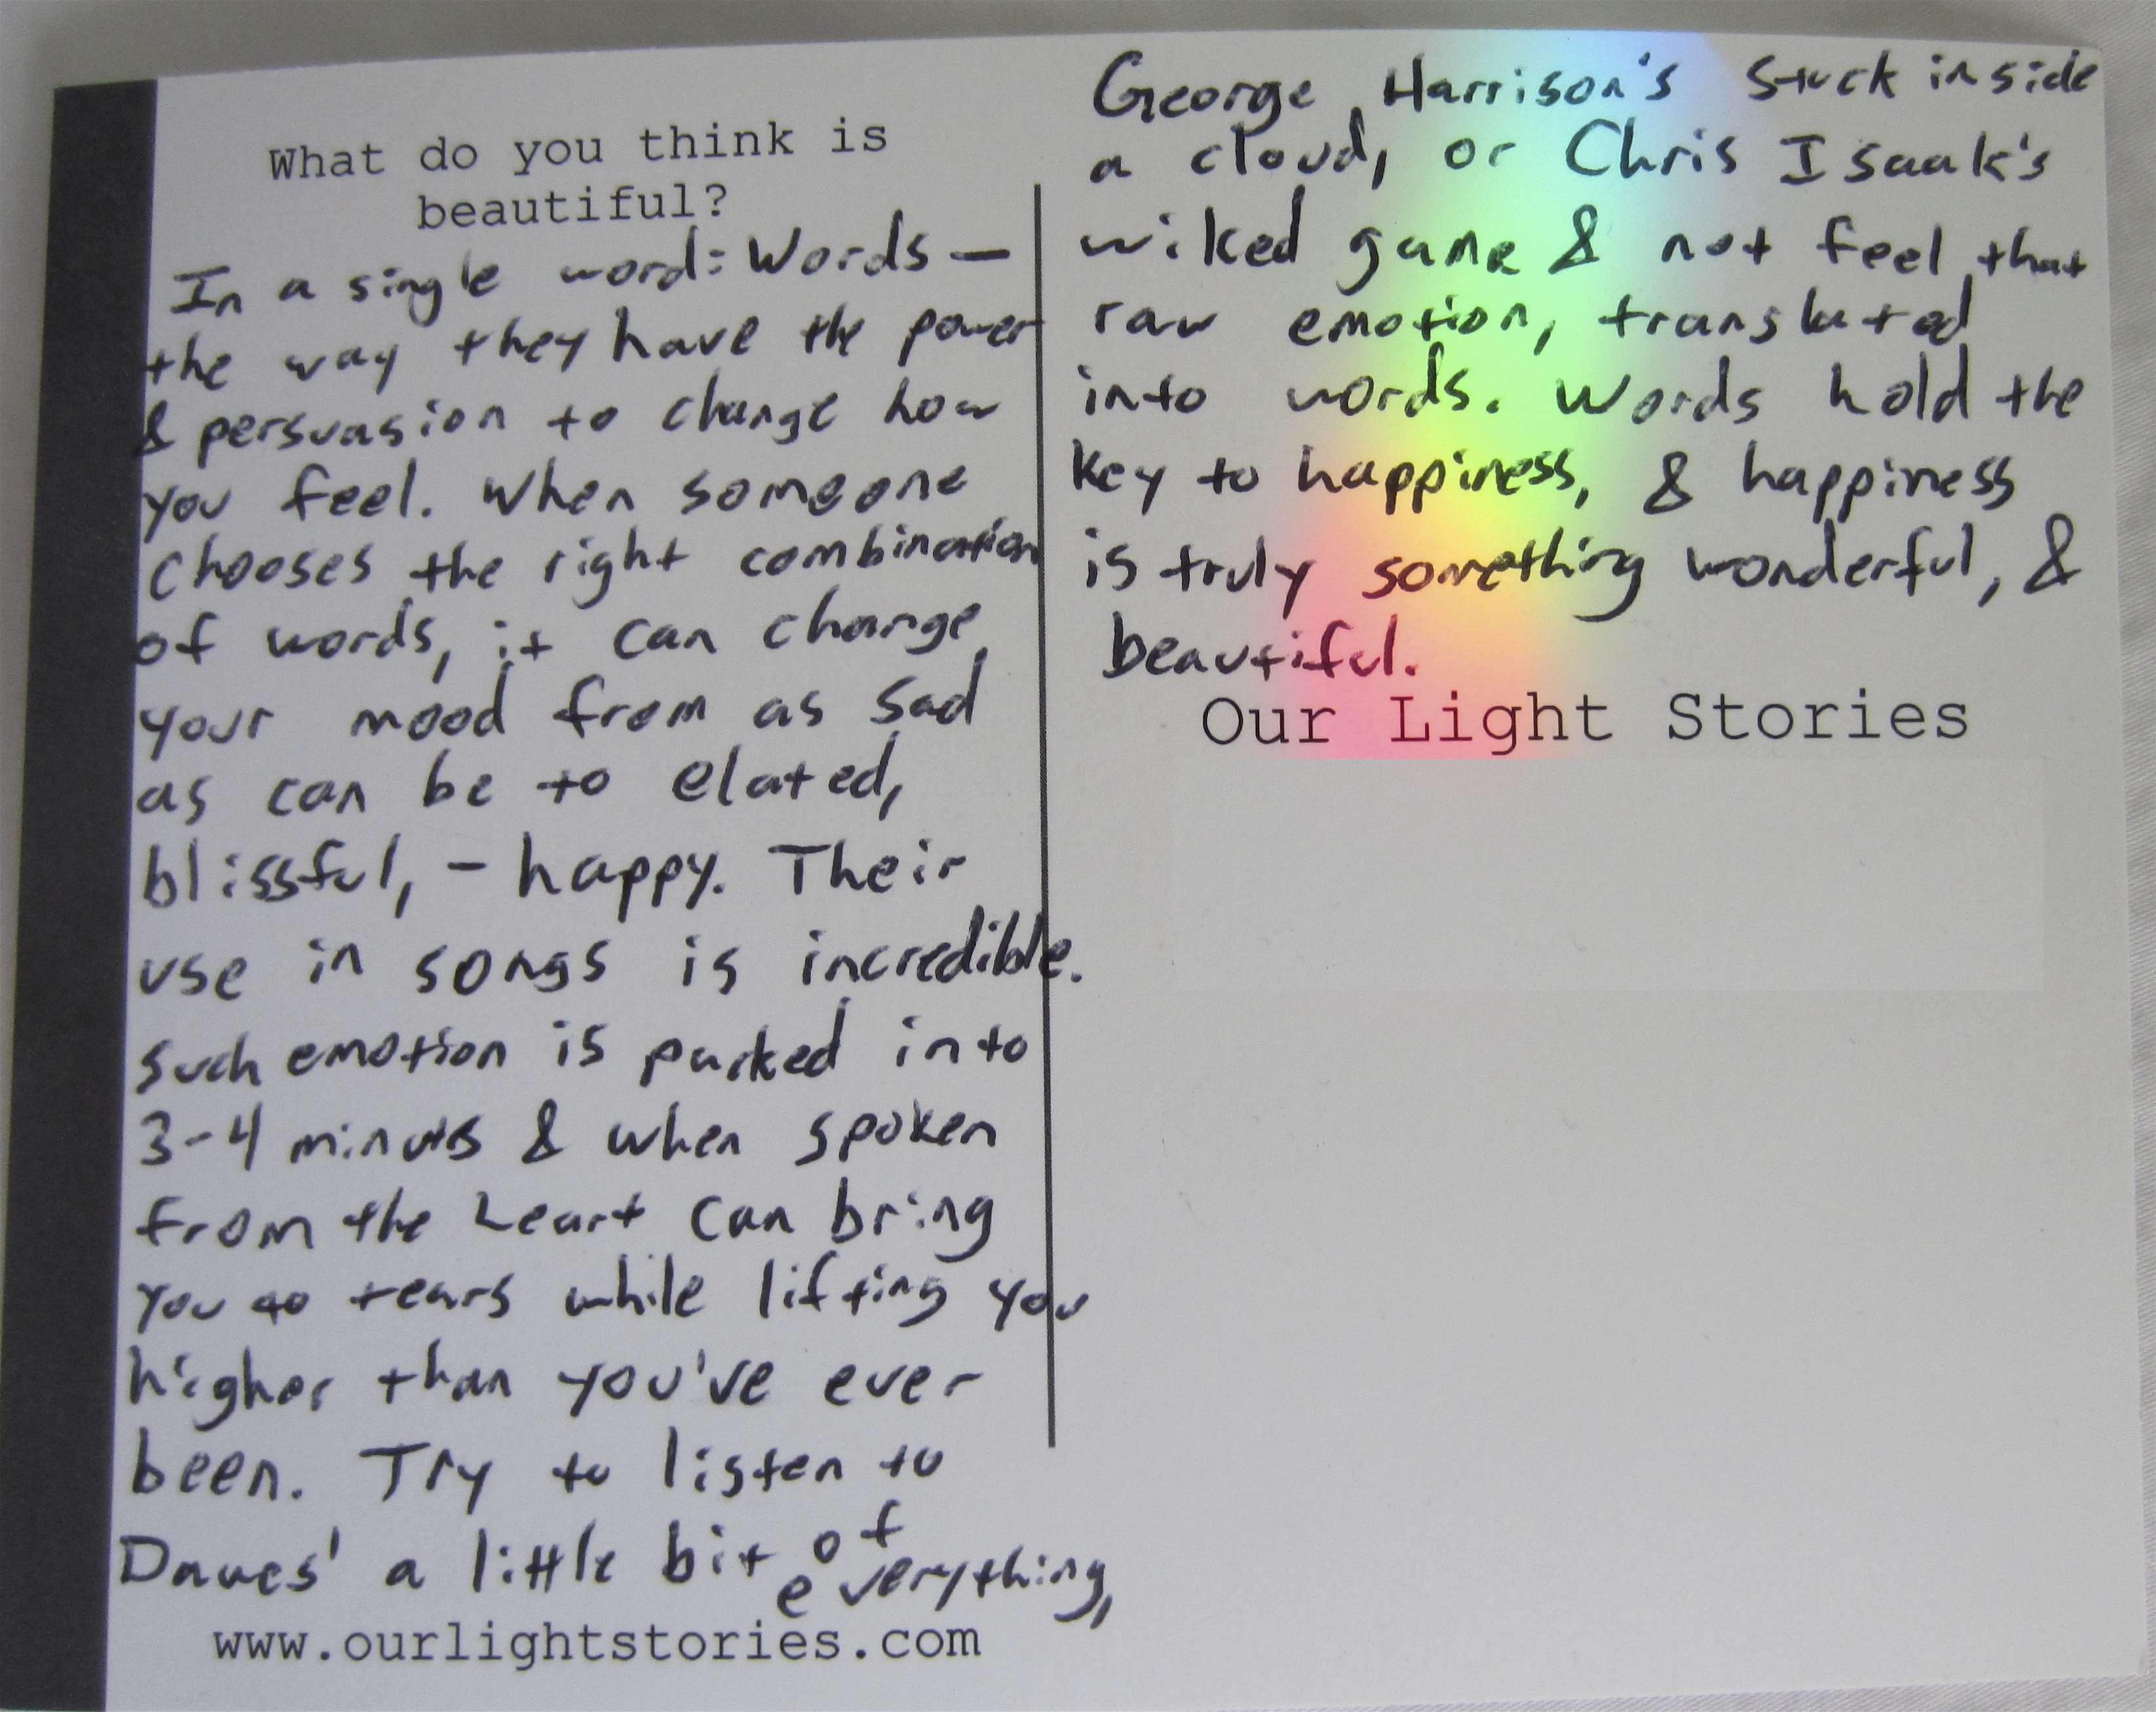 What do you think is
beautiful?
In a single word: Words —
the way they have the power
& persuasion to change how
you feel. When someone
chooses the right combination
of words, it can change
your mood from as sad
as can be to elated,
blissful, - happy. Their
use in songs is incredible.
Such emotion is packed into
3-4 minutes & when spoken
from the heart can bring
you to tears while lifting you
higher than you've ever
been. Try to listen to
Dawes' a little bit of
everything,
www.ourlightstories.com
George Harrison's stuck inside
a cloud, or Chris Isaak's
wiked game & not feel that
raw emotion, translated
into words. Words hold the
key to happiness, & happiness
is truly something wonderful, &
beautiful.
Our Light Stories